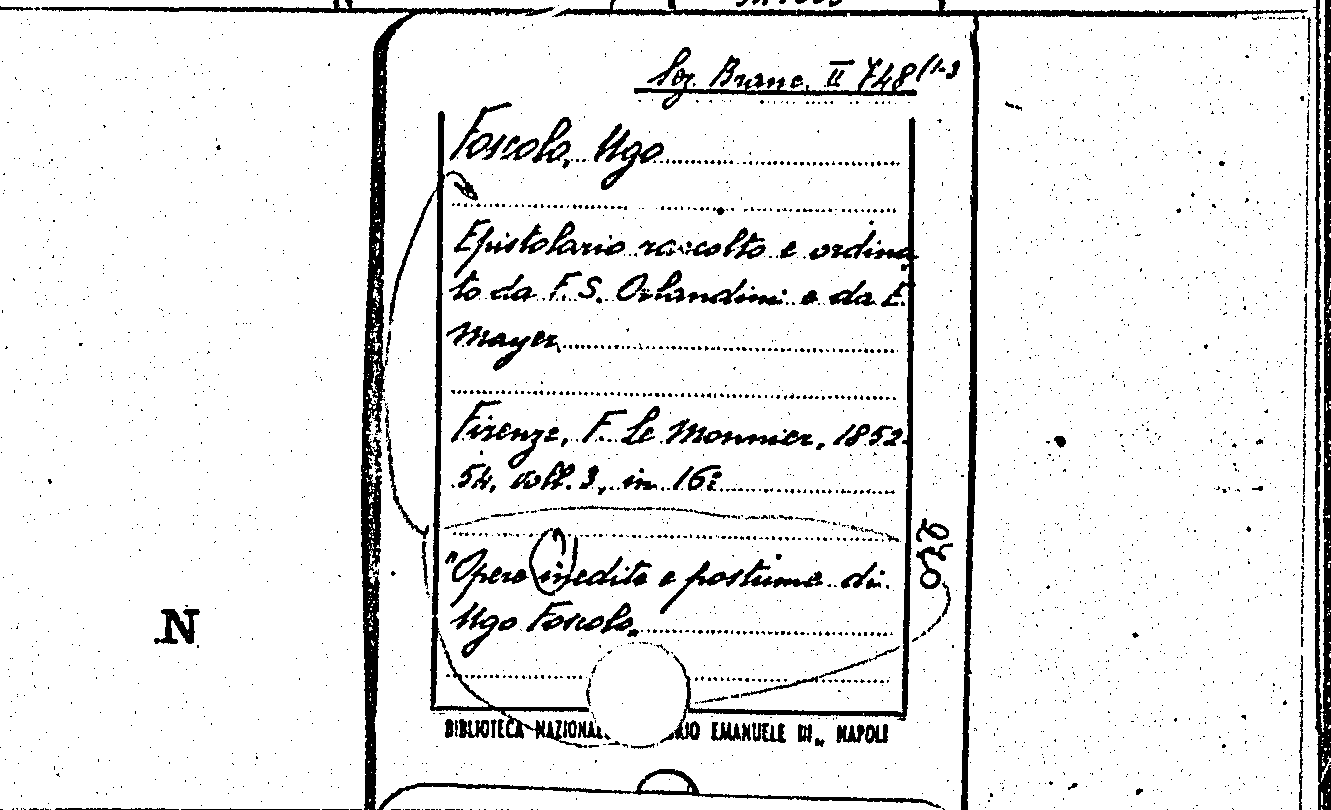 Branc. II 748 (1-3
Foscolo, Ugo
Epistolario raccolto e ordina
to da F. S. Orlandini e da E.
Mayer
Firenze, F. Le Monnier, 1852-
54, voll. 3, in 16º
"Opere inedite e postume di
Ugo Foscolo
N
BIBLIOTECA NAZIONA RIO EMANUELE III„ NAPOLI